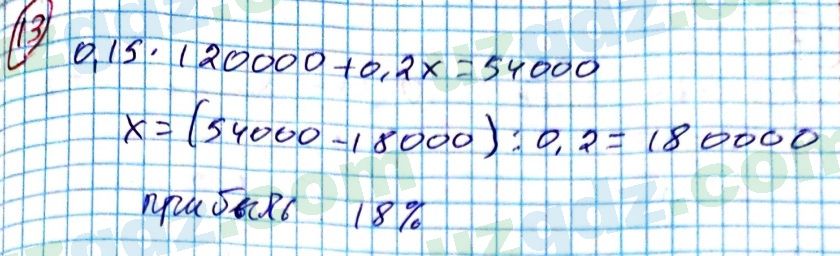 13
0,15 · 120000 + 0,2x = 54000
x = (54000 - 18000) : 0,2 = 180000
прибыль 18%